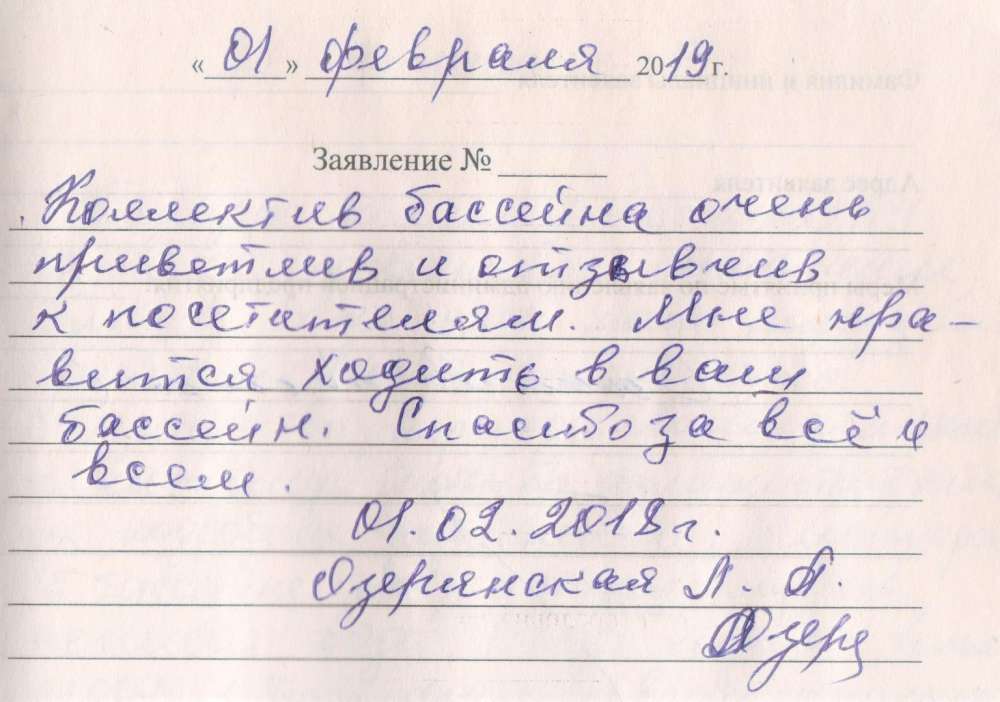 « 01 » февраля 2019 г.
Заявление № ______
Коллектив бассейна очень
приветлив и отзывчив
к посетителям. Мне нра-
вится ходить в ваш
бассейн. Спасибо за всё и
всем.
01.02.2018 г.
Озерянская Л. А.